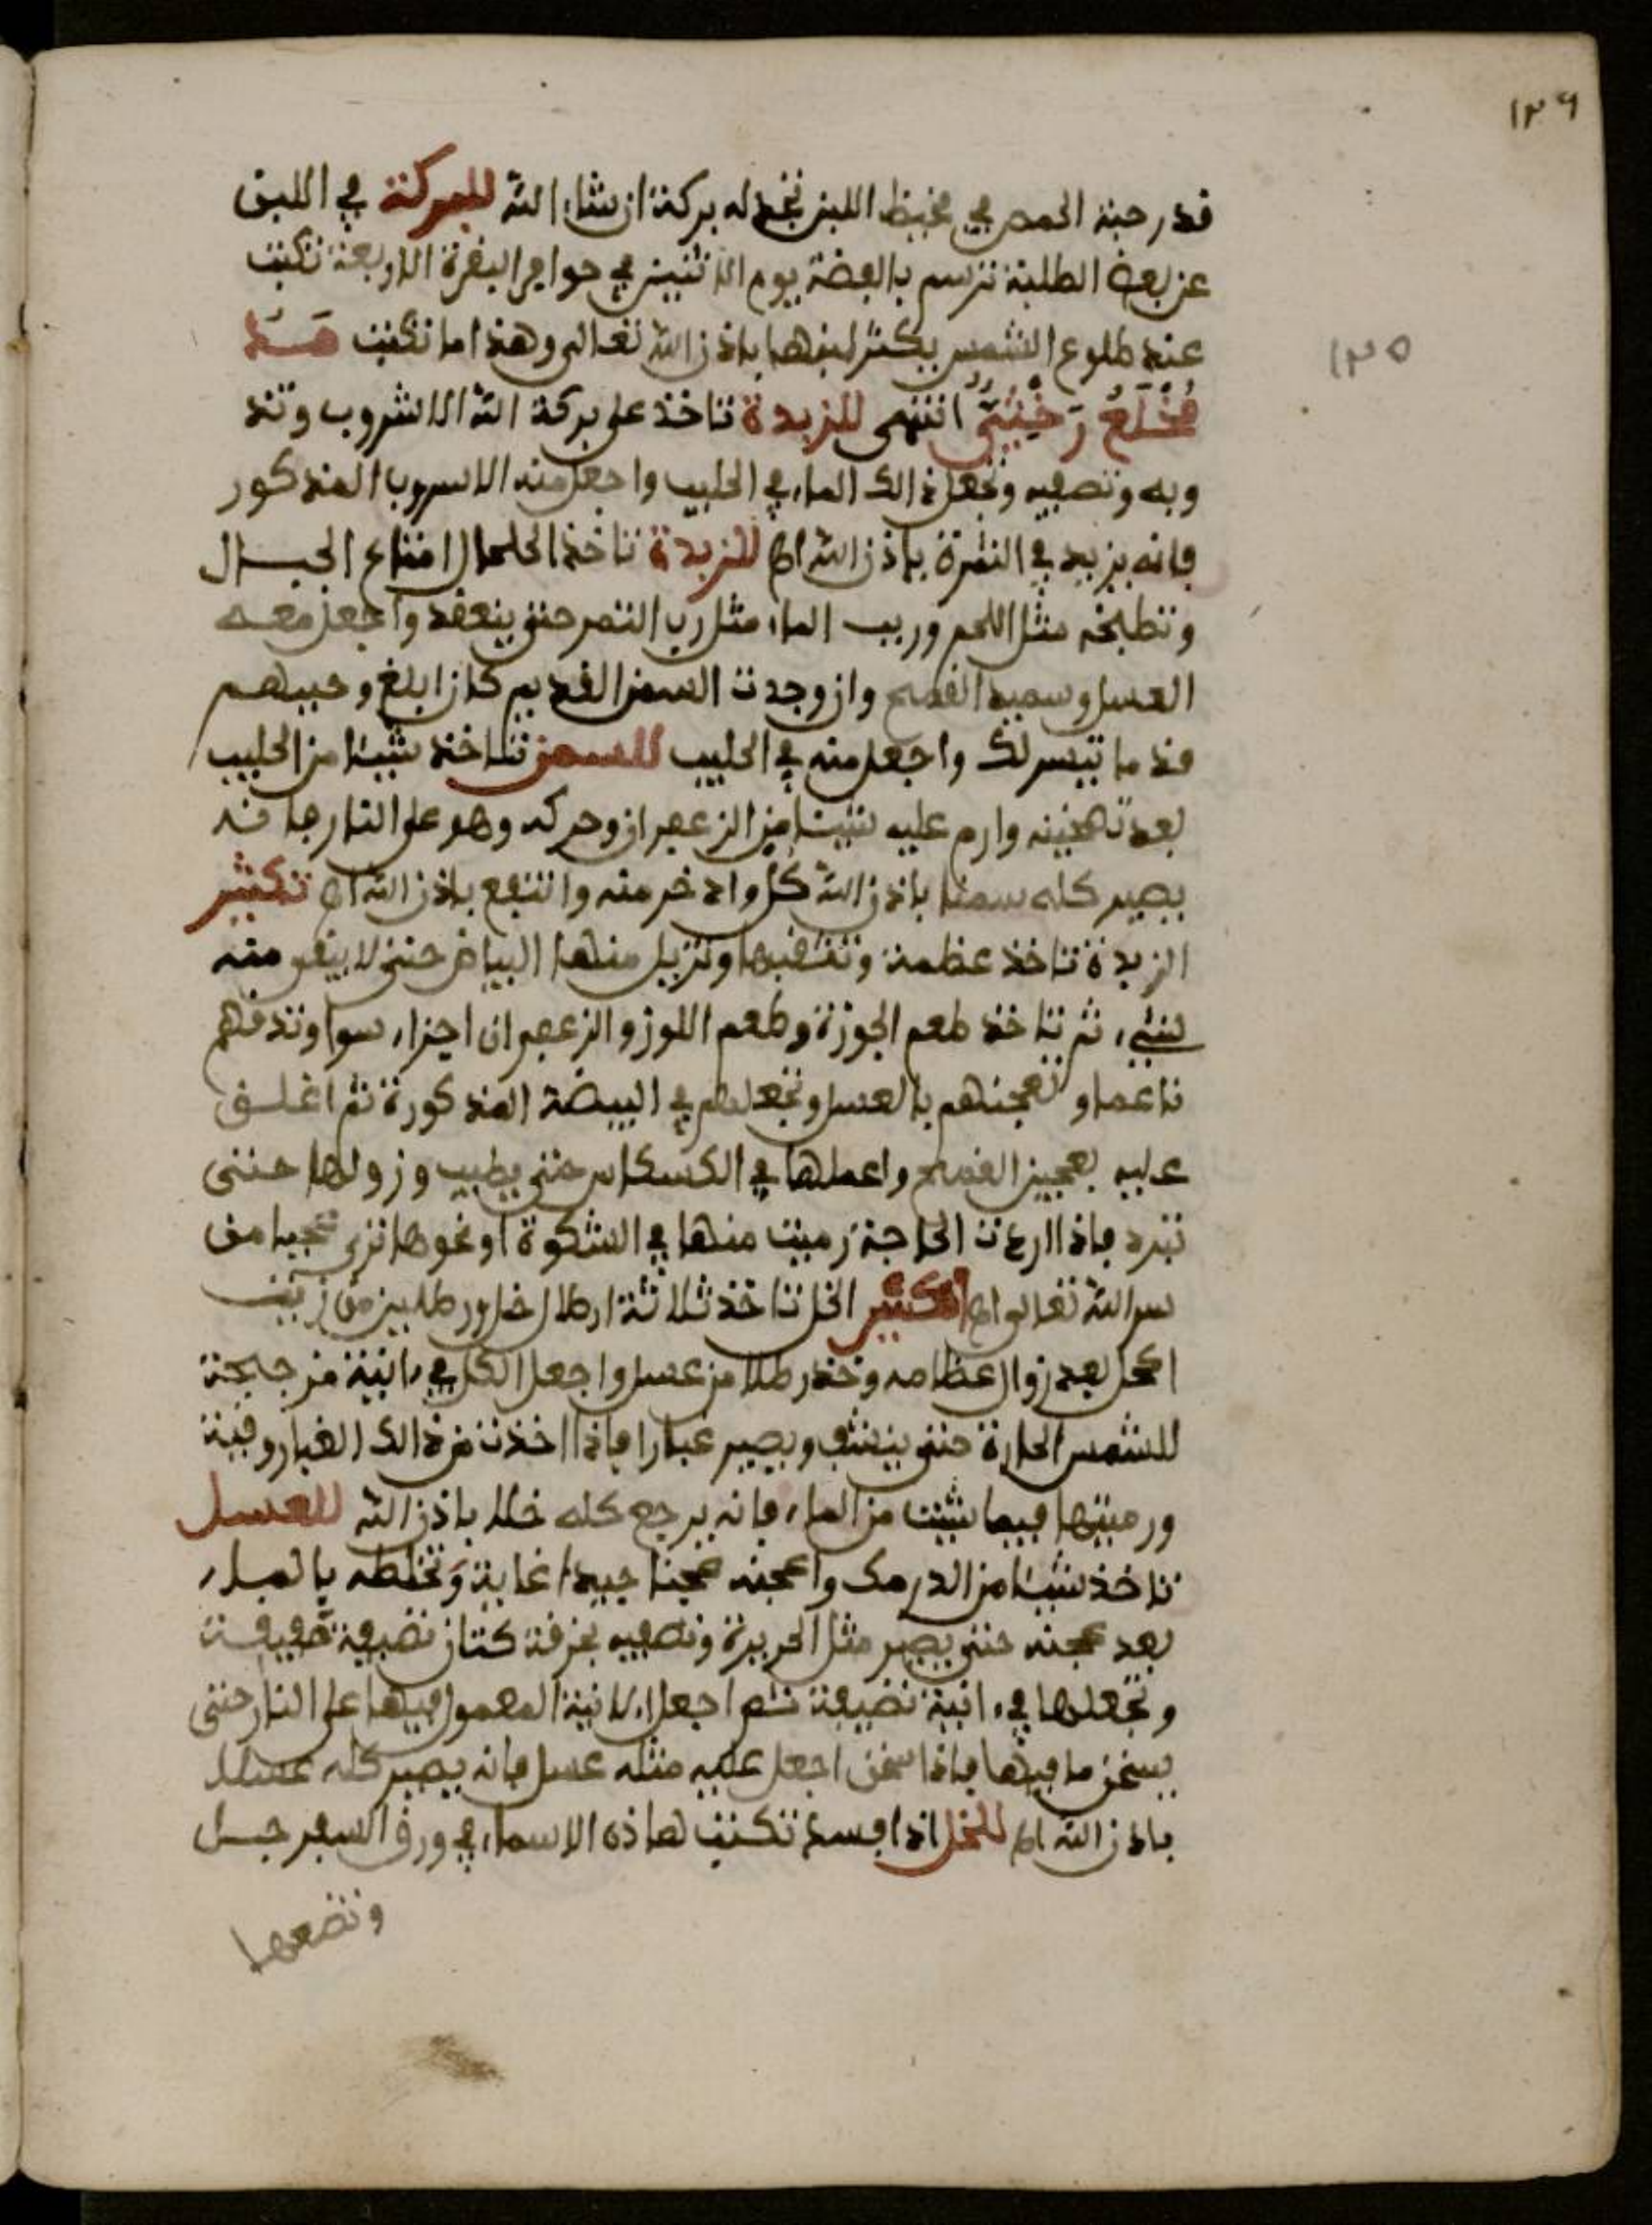 ١٢٦
قدر حبة الحمص في مخيظ اللبن تجد له بركة ان شاء الله للبركة في اللبن
عن بعض الطلبة ترسم بالفضة يوم الاثنين في حوافر البقرة الاربعة تكتب
عند طلوع الشمس يكثر لبنها باذن الله تعالى وهذا ما تكتب
١٢٥
انتهى للزبدة تاخذ على بركة الله الاشروب وتذ
وبه وتصفيه وتجعل ذالك الماء في الحليب واجعل منه الاسروب المذكور
فانه يزيد في الثمرة باذن الله اه للزبدة تاخذ الحلحال امتاع الجبال
وتطبخه مثل اللحم وريب الماء مثل رب التمر حتى ينعقد واجعل معه
العسل وسميد القمح وان وجدت السمن القديم كان ابلغ وحببهم
قد ما تيسر لك واجعل منه في الحليب للسمن تاخذ شيئا من الحليب
بعد تهجينه وارم عليه شيئا من الزعفران وحركه وهو على النار فانه
يصير كله سمنا باذن الله كل وادخر منه وانتفع باذن الله اه تكثير
الزبدة تاخذ عظمة وتثقبها وتزيل منها البياض حتى لا يبقى منه
شيء ثم تاخذ طعم الجوزة وطعم اللوز والزعفران اجزاء سوا وتدقهم
ناعما وتعجنهم بالعسل وتجعلهم في البيضة المذكورة ثم اغلق
عليه بعجين القمح واعملها في الكسكاس حتى يطيب وزولها حتى
تبرد فاذا اردت الحاجة رميت منها في الشكوة او نحوها ترى عجبا من
سر الله تعالى اه لتكثير الخل تاخذ ثلاثة ارطال خل ورطلين من زبيب
اكحل بعد زوال عظامه وخذ رطلا من عسل واجعل الكل في ءانية مزججة
للشمس الحارة حتى ينشف ويصير غبارا فاذا اخذت من ذالك الغبار وقية
ورميتها فيما شئت من الماء فانه يرجع كله خلا باذن الله للعسل
تاخذ شيئا من الدرمك واعجنه عجينا جيدا غاية وتخلطه بالماء
بعد عجنه حتى يصير مثل الحريرة وتصفيه بخرقة كتان نضيفة خفيفة
وتجعلها في ءانية نضيفة ثم اجعل الانية المعمول فيها على النار حتى
يسخن ما فيها فاذا سخن اجعل عليه مثله عسل فانه يصير كله عسلا
باذن الله اه للنحل اذا فسد تكتب هاذه الاسماء في ورق
وتضعها